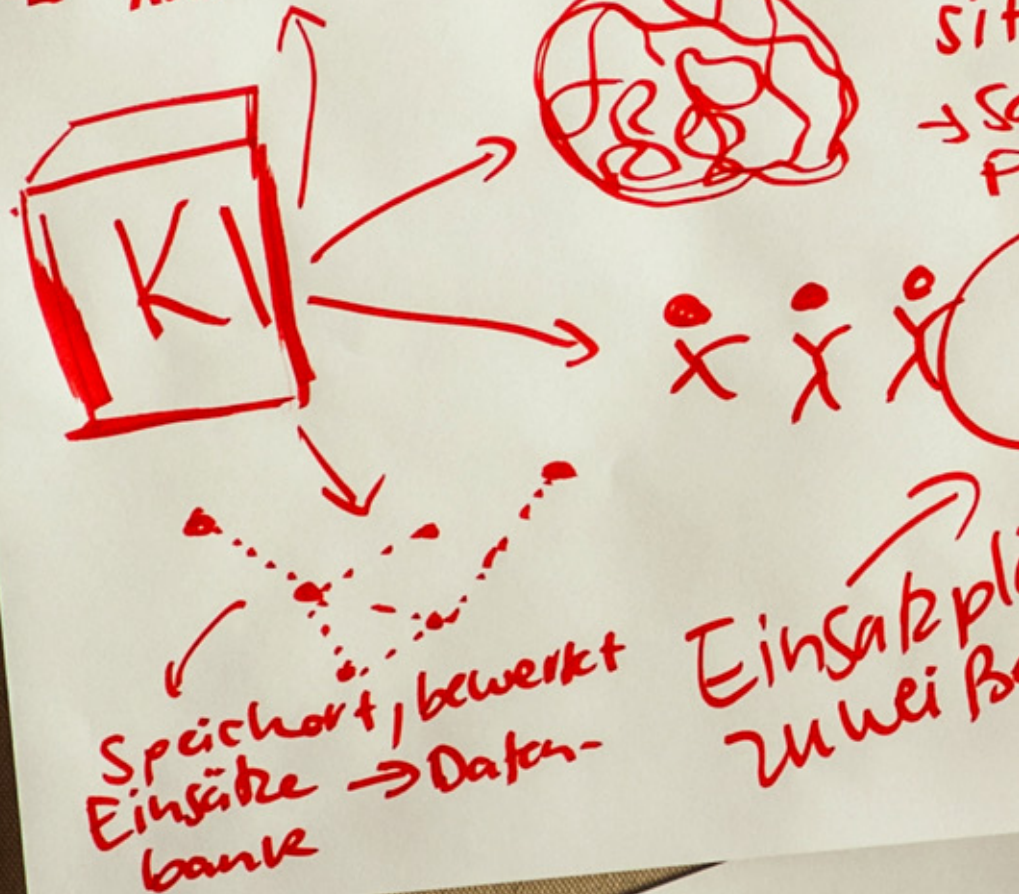 sit
→ Sc
P
KI
Speichort, bewertet
Einsätze → Daten-
bank
Einsatzpl
zuwei